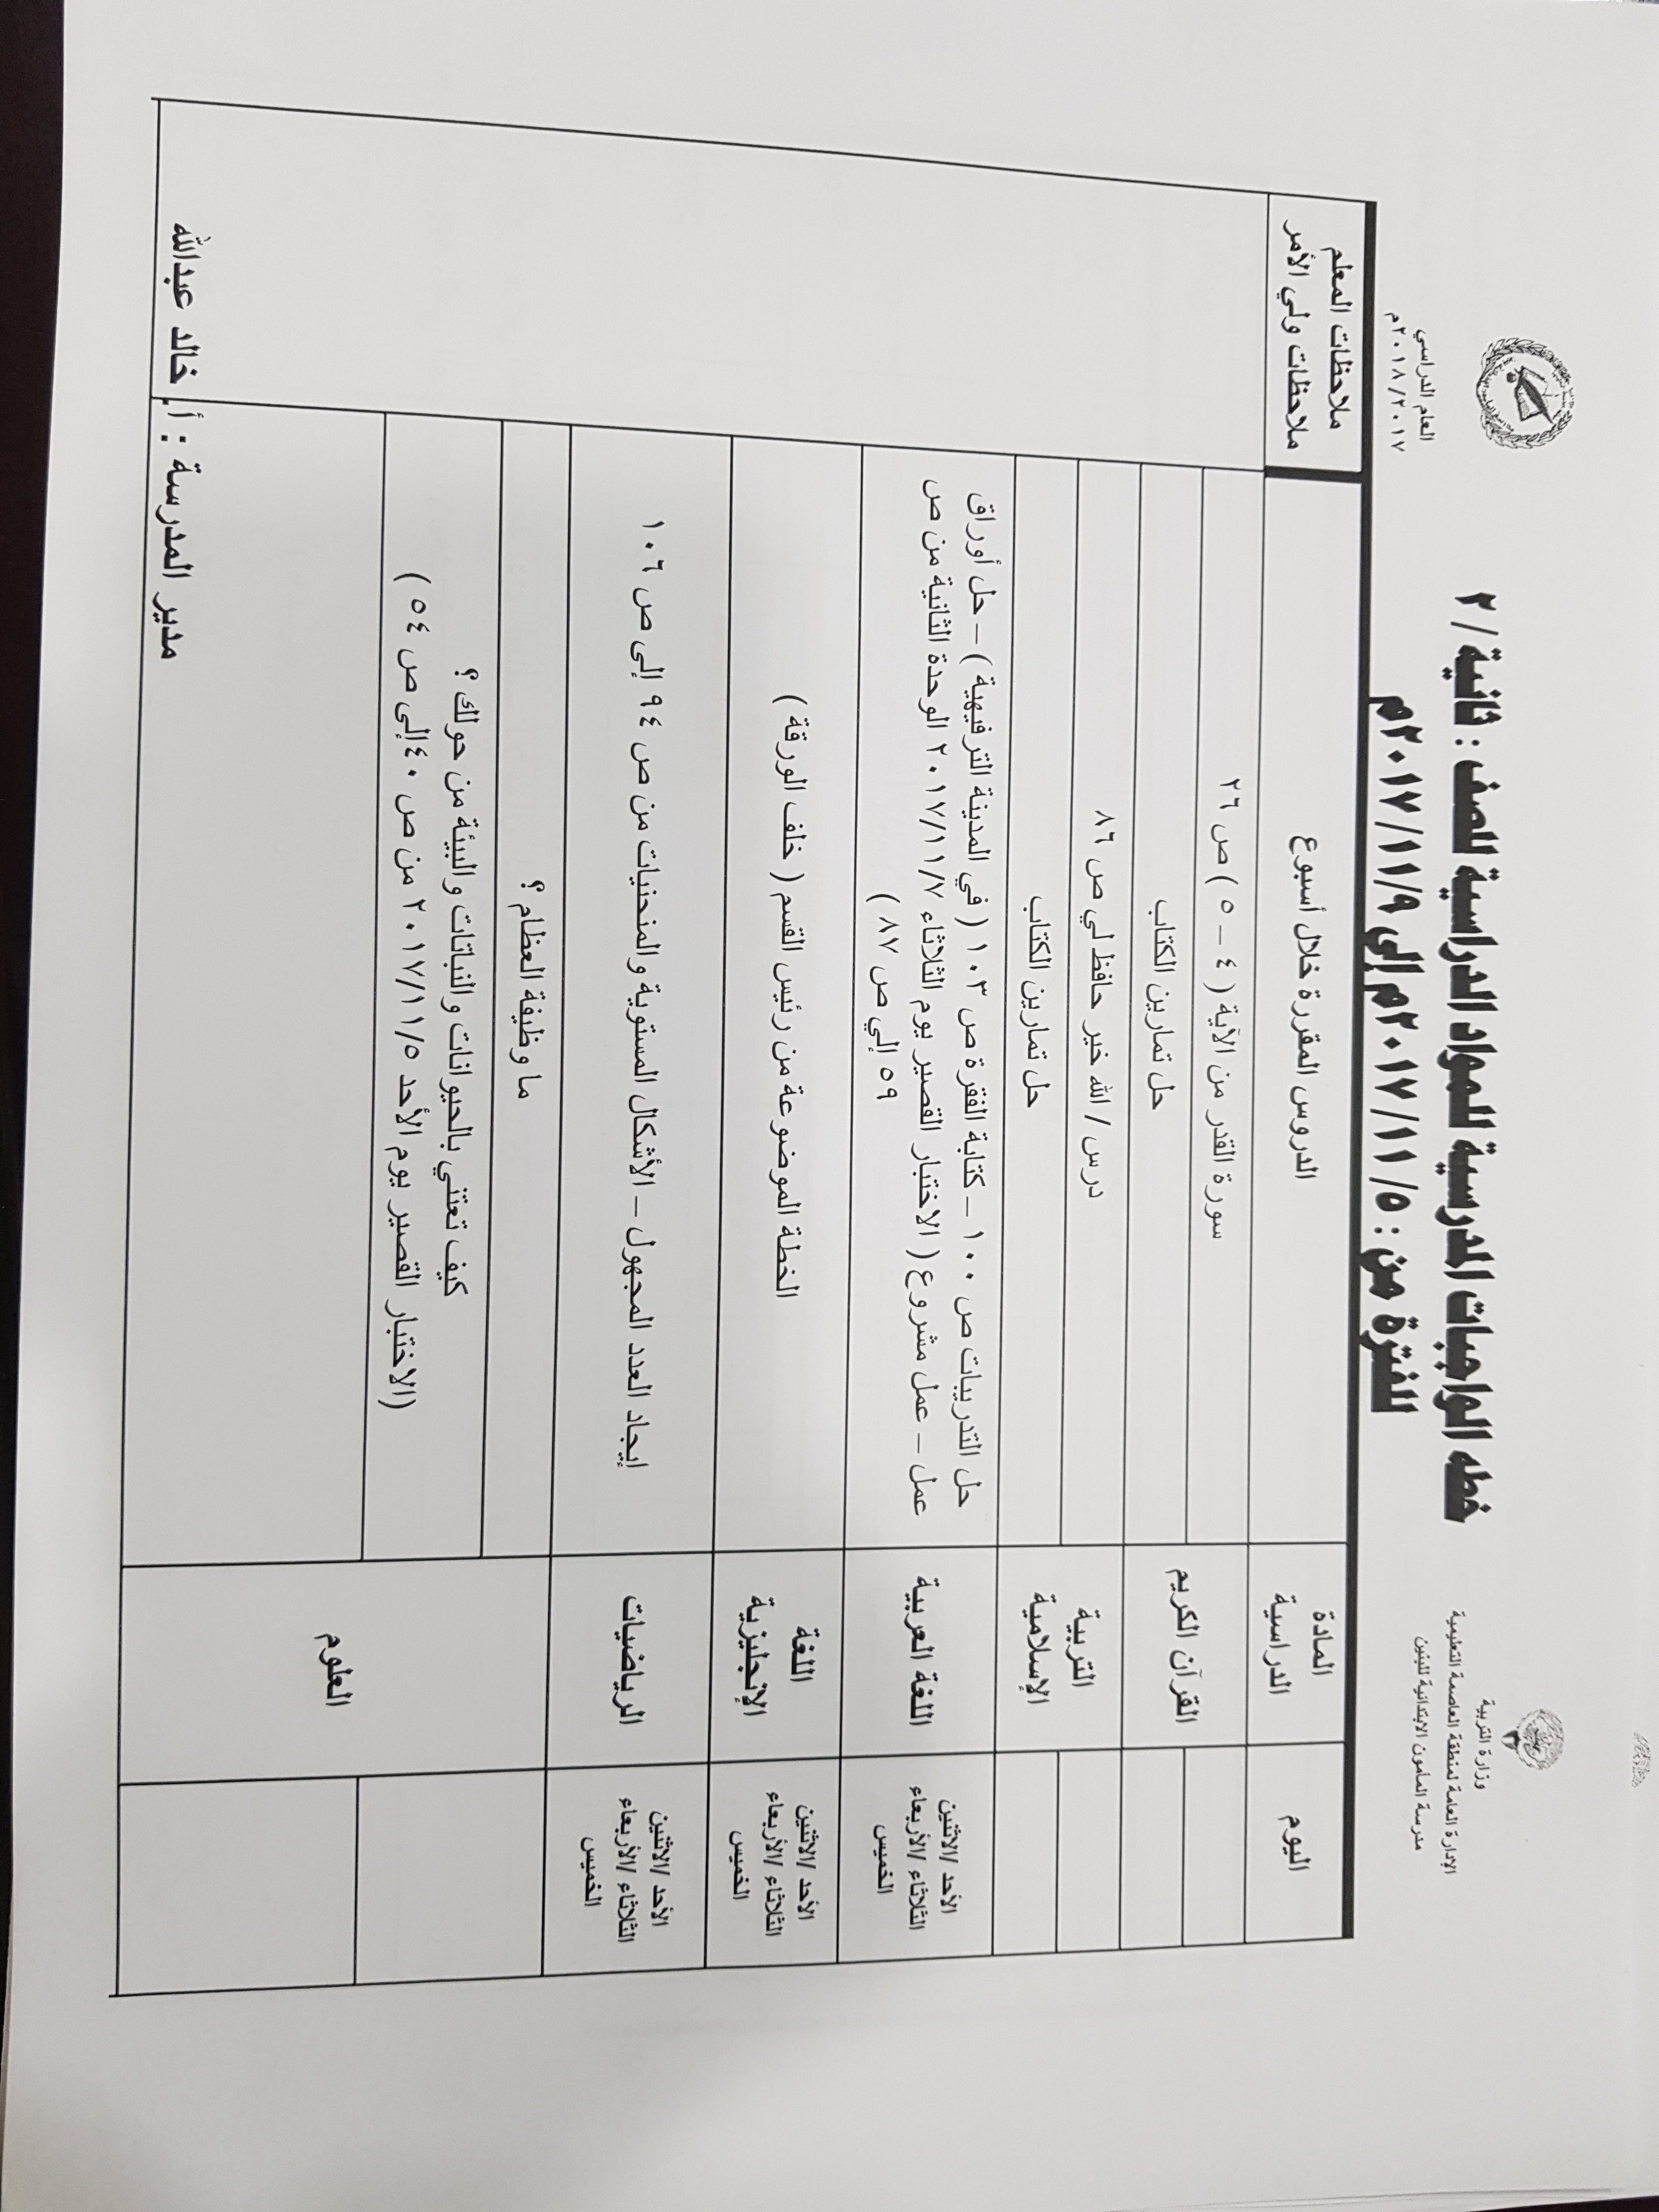 وزارة التربية
الإدارة العامة لمنطقة العاصمة التعليمية
مدرسة المأمون الابتدائية للبنين
العام الدراسي
٢٠١٨/٢٠١٧م
خطه الواجبات المدرسية للمواد الدراسية للصف : ثانية / ٢
للفترة من : ٥ /٢٠١٧/١١م إلى ٢٠١٧/١١/٩م
اليوم
المادة
الدراسية
الدروس المقررة خلال أسبوع
ملاحظات المعلم
ملاحظات ولي الأمر
القرآن الكريم
سورة القدر من الآية ( ٤ – ٥ ) ص ٢٦
حل تمارين الكتاب
التربية
الإسلامية
درس / الله خير حافظ لي ص ٨٦
حل تمارين الكتاب
الأحد /الاثنين
الثلاثاء /الأربعاء
الخميس
اللغة العربية
حل التدريبات ص ١٠٠ – كتابة الفقرة ص ١٠٣ ( في المدينة الترفيهية ) – حل أوراق
عمل – عمل مشروع ( الاختبار القصير يوم الثلاثاء ٢٠١٧/١١/٧ الوحدة الثانية من ص
٥٩ إلي ص ٨٧ )
الأحد /الاثنين
الثلاثاء /الأربعاء
الخميس
اللغة
الإنجليزية
الخطة الموضوعة من رئيس القسم ( خلف الورقة )
الأحد /الاثنين
الثلاثاء /الأربعاء
الخميس
الرياضيات
إيجاد العدد المجهول – الأشكال المستوية والمنحنيات من ص ٩٤ إلى ص ١٠٦
العلوم
ما وظيفة العظام ؟
كيف تعتني بالحيوانات والنباتات والبيئة من حولك ؟
(الاختبار القصير يوم الأحد ٢٠١٧/١١/٥ من ص ٤٠ إلى ص ٥٤ )
مدير المدرسة : أ. خالد عبدالله